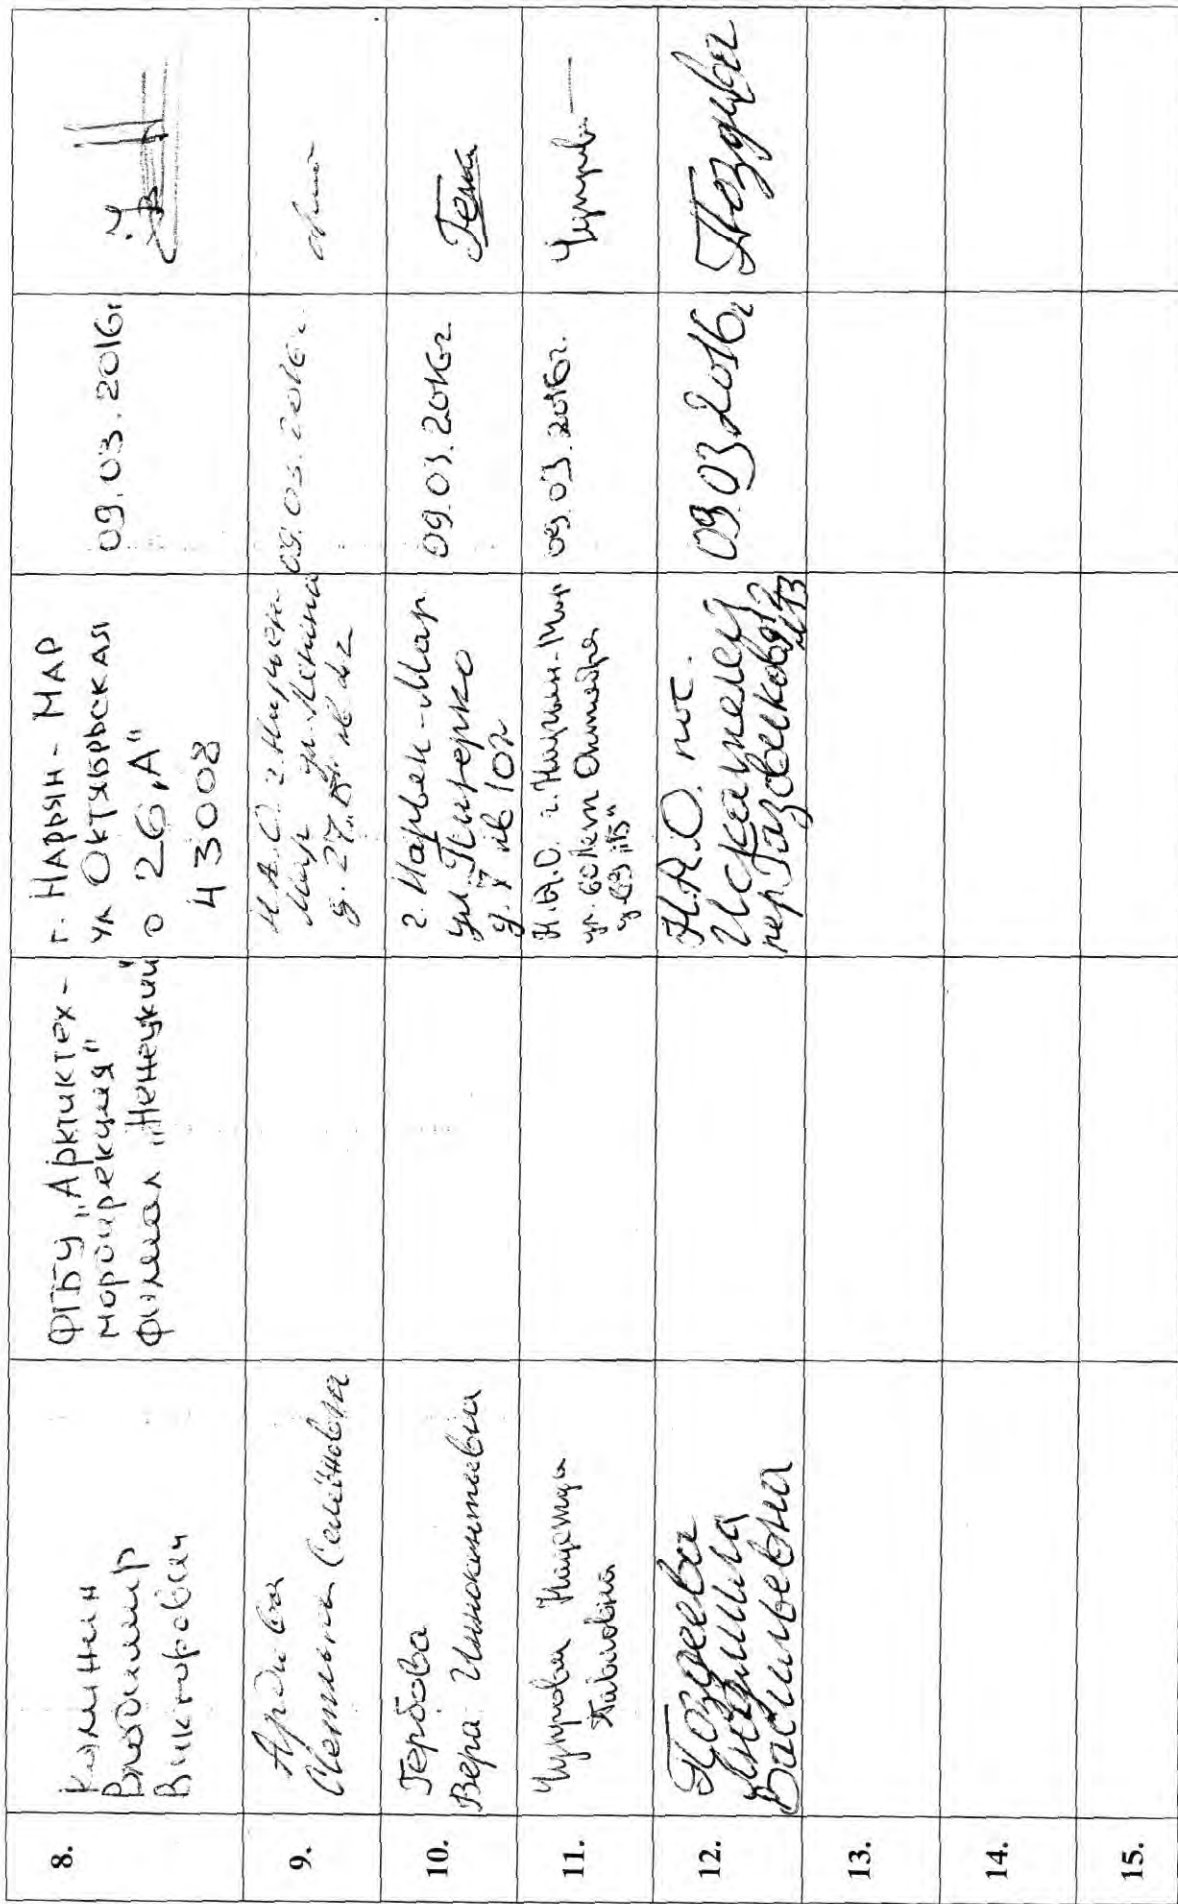 8.
Калинин
Владимир
Викторович
ФГБУ „Арктиктех-
мордирекция"
филиал „Ненецкий"
г. НАРЬЯН-МАР
ул ОКТЯБРЬСКАЯ
26 „А"
43008
09.03.2016г
9.
Светлана Семёновна
Н.А.О. г. Нарьян-
Мар ул. Ленина
09.03.2016г.
10.
Гербова
Вера Иннокентьевна
г. Нарьян-Мар
ул. Пырерко
д. 7 кв 102
09.03.2016г
11.
Чупрова Надежда
Павловна
Н.А.О. г. Нарьян-Мар
ул. 60 лет Октября
09.03.2016г.
12.
Поздеева
Людмила
Васильевна
Н.А.О. пос.
Искателей
пер Газовиков
09.03.2016г
Поздеева
13.
14.
15.